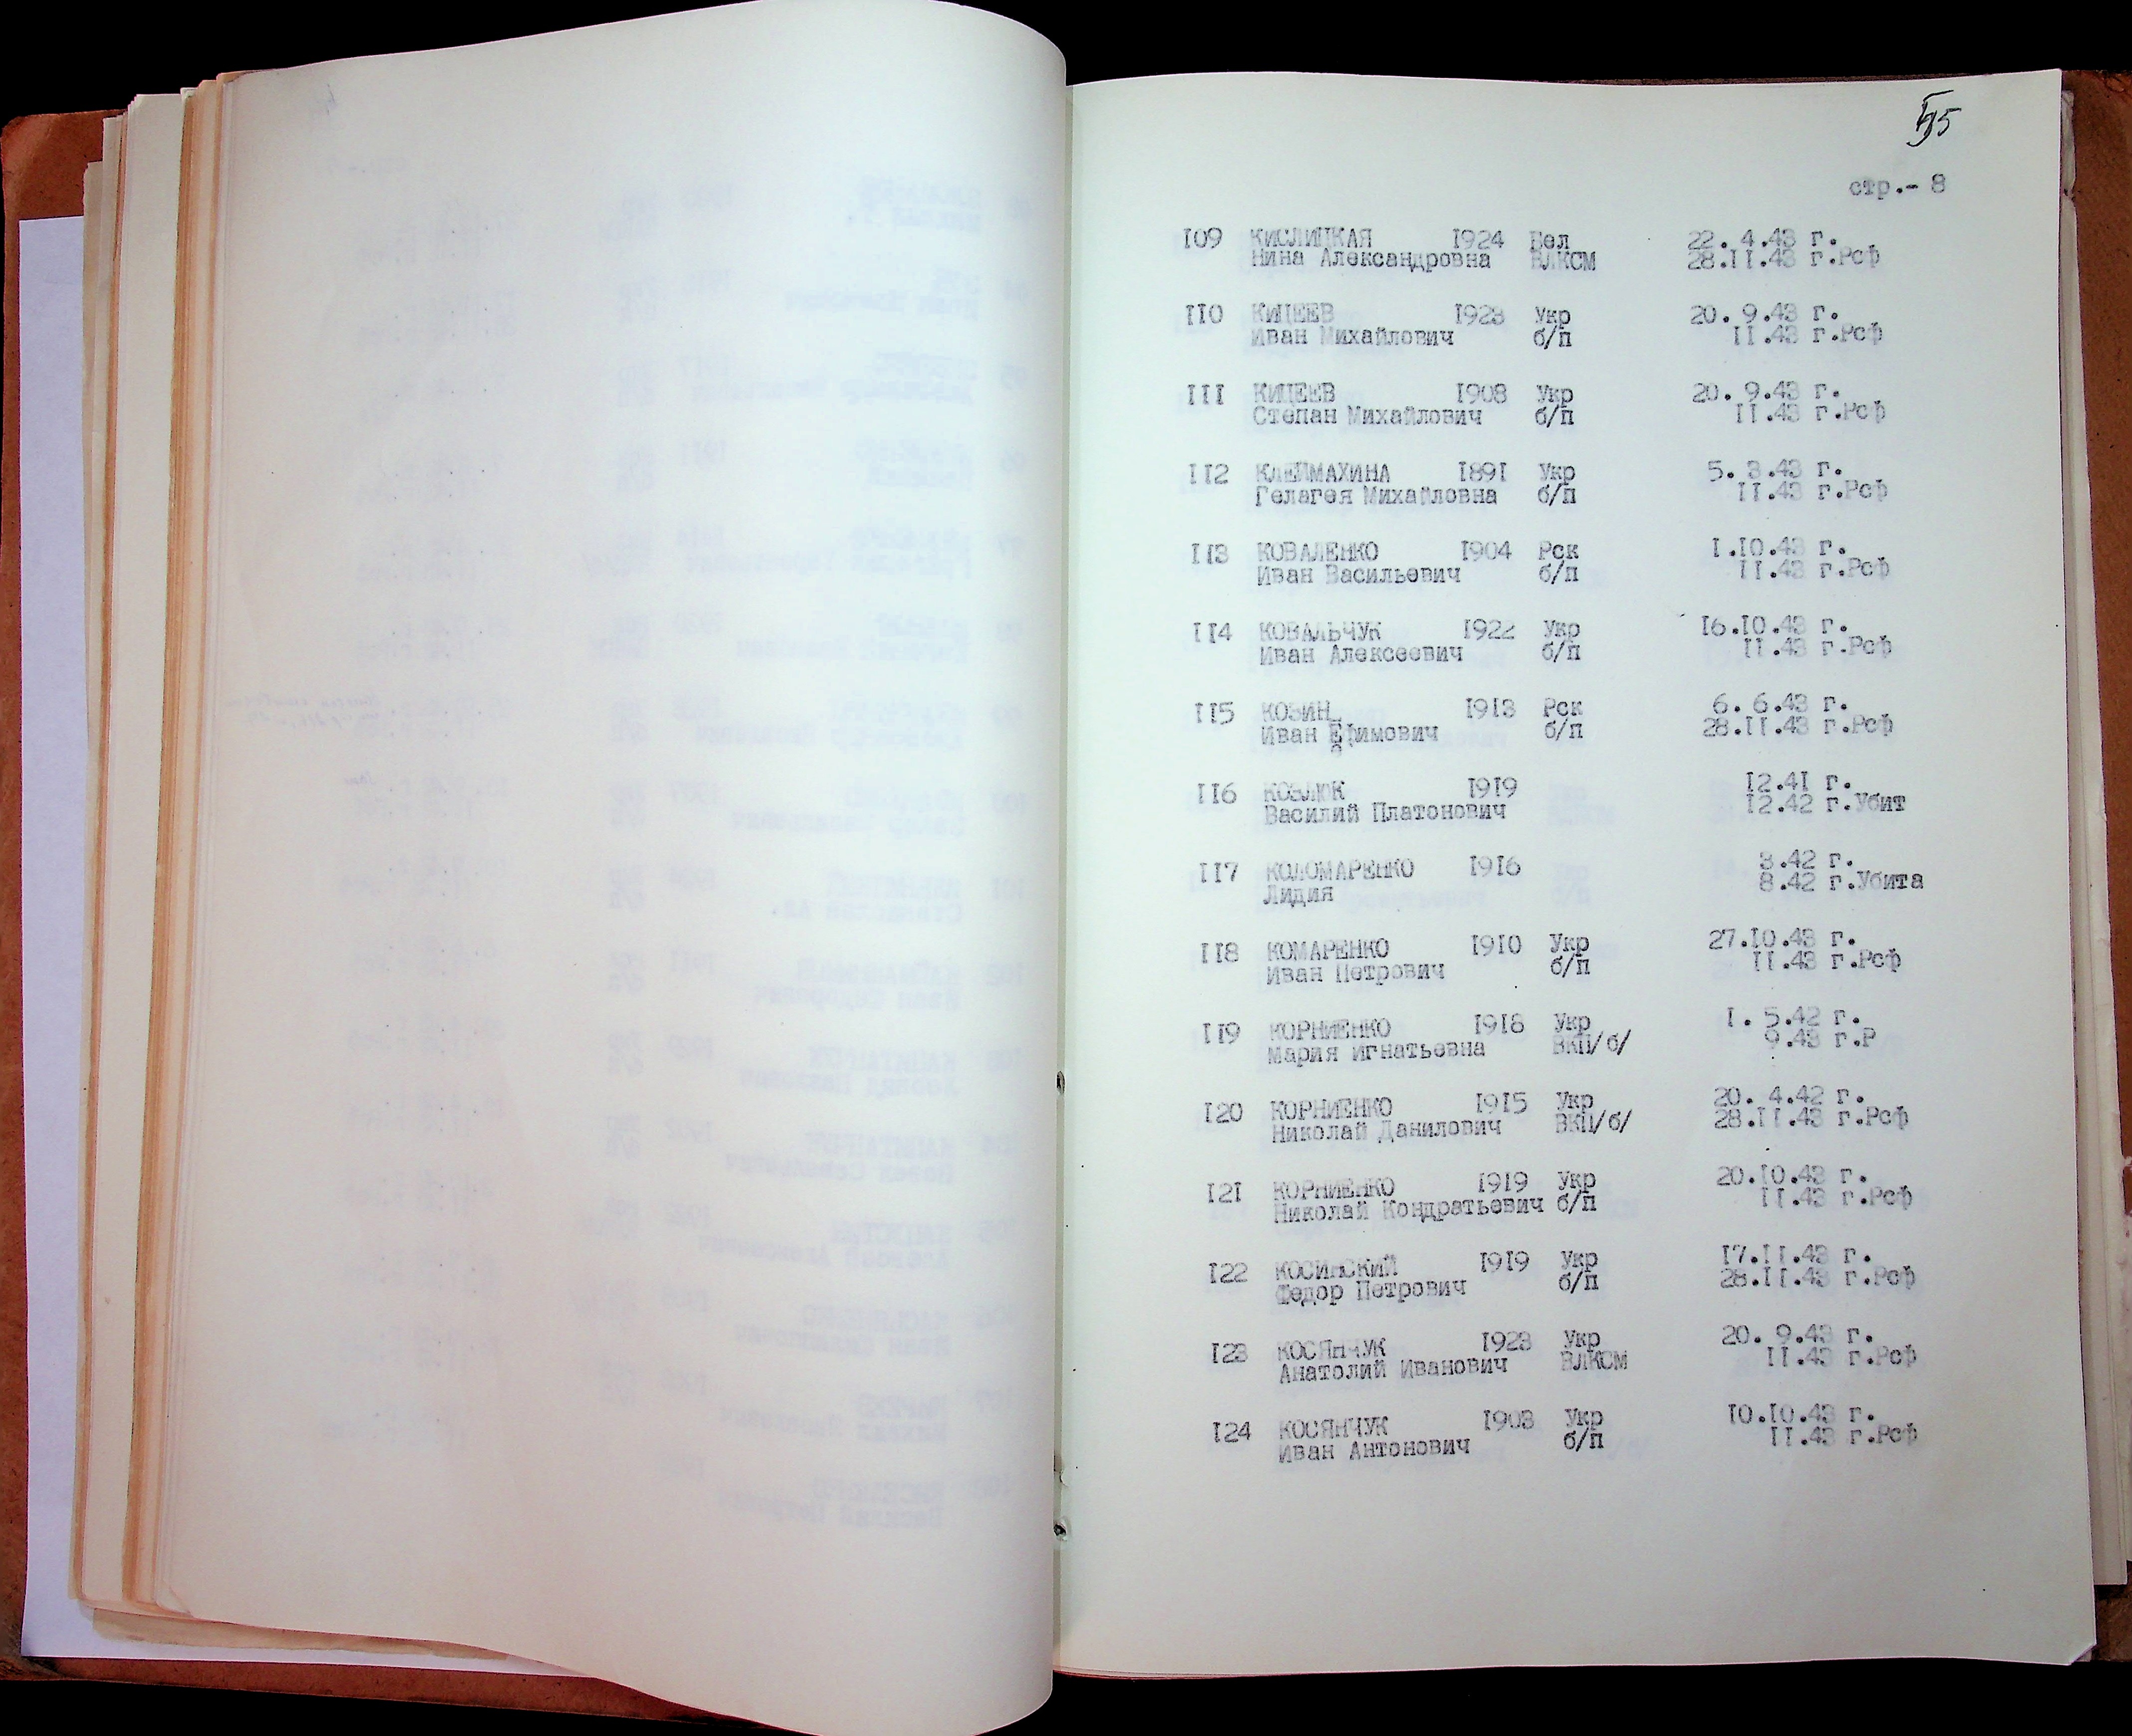 стр.- 8
109 КИСЛИЦКАЯ 1924 Бел 22. 4.43 г.
Нина Александровна ВЛКСМ 28.II.43 г.Рсф
II0 КИЦЕЕВ 1923 Укр 20. 9.43 г.
Иван Михайлович б/п II.43 г.Рсф
III КИЦЕЕВ 1908 Укр 20. 9.43 г.
Степан Михайлович б/п II.43 г.Рсф
II2 КЛЕЙМАХИНА I891 Укр 5. 3.43 г.
Гелагея Михайловна б/п II.43 г.Рсф
II3 КОВАЛЕНКО I904 Рск I.I0.43 г.
Иван Васильевич б/п II.43 г.Рсф
II4 КОВАЛЬЧУК I922 Укр I6.I0.43 г.
Иван Алексеевич б/п II.43 г.Рсф
II5 КОЗИН I913 Рск 6. 6.43 г.
Иван Ефимович б/п 28.II.43 г.Рсф
II6 КОЗЛЮК I919 I2.41 г.
Василий Платонович I2.42 г.Убит
II7 КОЛОМАРЕНКО I916 3.42 г.
Лидия 8.42 г.Убита
II8 КОМАРЕНКО I910 Укр 27.I0.43 г.
Иван Петрович б/п II.43 г.Рсф
II9 КОРНИЕНКО I918 Укр I. 5.42 г.
Мария Игнатьевна ВКП/б/ 9.43 г.Р
I20 КОРНИЕНКО I915 Укр 20. 4.42 г.
Николай Данилович ВКП/б/ 28.II.43 г.Рсф
I21 КОРНИЕНКО I919 Укр 20.I0.43 г.
Николай Кондратьевич б/п II.43 г.Рсф
I22 КОСИНСКИЙ I919 Укр I7.II.43 г.
Федор Петрович б/п 28.II.43 г.Рсф
I23 КОСЯНЧУК I923 Укр 20. 9.43 г.
Анатолий Иванович ВЛКСМ II.43 г.Рсф
I24 КОСЯНЧУК I903 Укр I0.I0.43 г.
Иван Антонович б/п II.43 г.Рсф